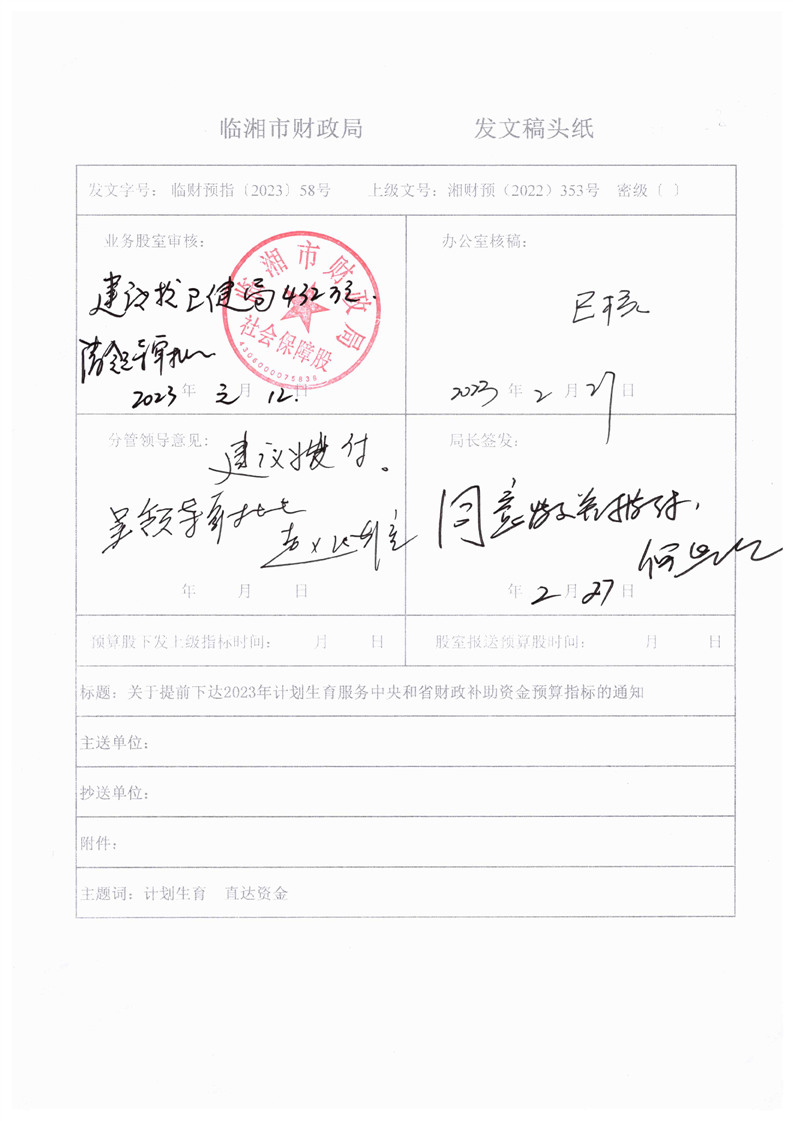 临湘市财政局 发文稿头纸
发文字号： 临财预指〔2023〕58号 上级文号：湘财预（2022）353号 密级〔 〕
业务股室审核：
建议拨卫健局432万元.
请领导审批
2023年 元月 12日
临湘市财政局
社会保障股
4306000075838
办公室核稿：
已核
2023年 2月 27日
分管领导意见：
建议拨付。
呈领导审批
年 月 日
局长签发：
同意
年 2月 27日
预算股下发上级指标时间： 月 日
股室报送预算股时间： 月 日
标题：关于提前下达2023年计划生育服务中央和省财政补助资金预算指标的通知
主送单位：
抄送单位：
附件：
主题词：计划生育 直达资金